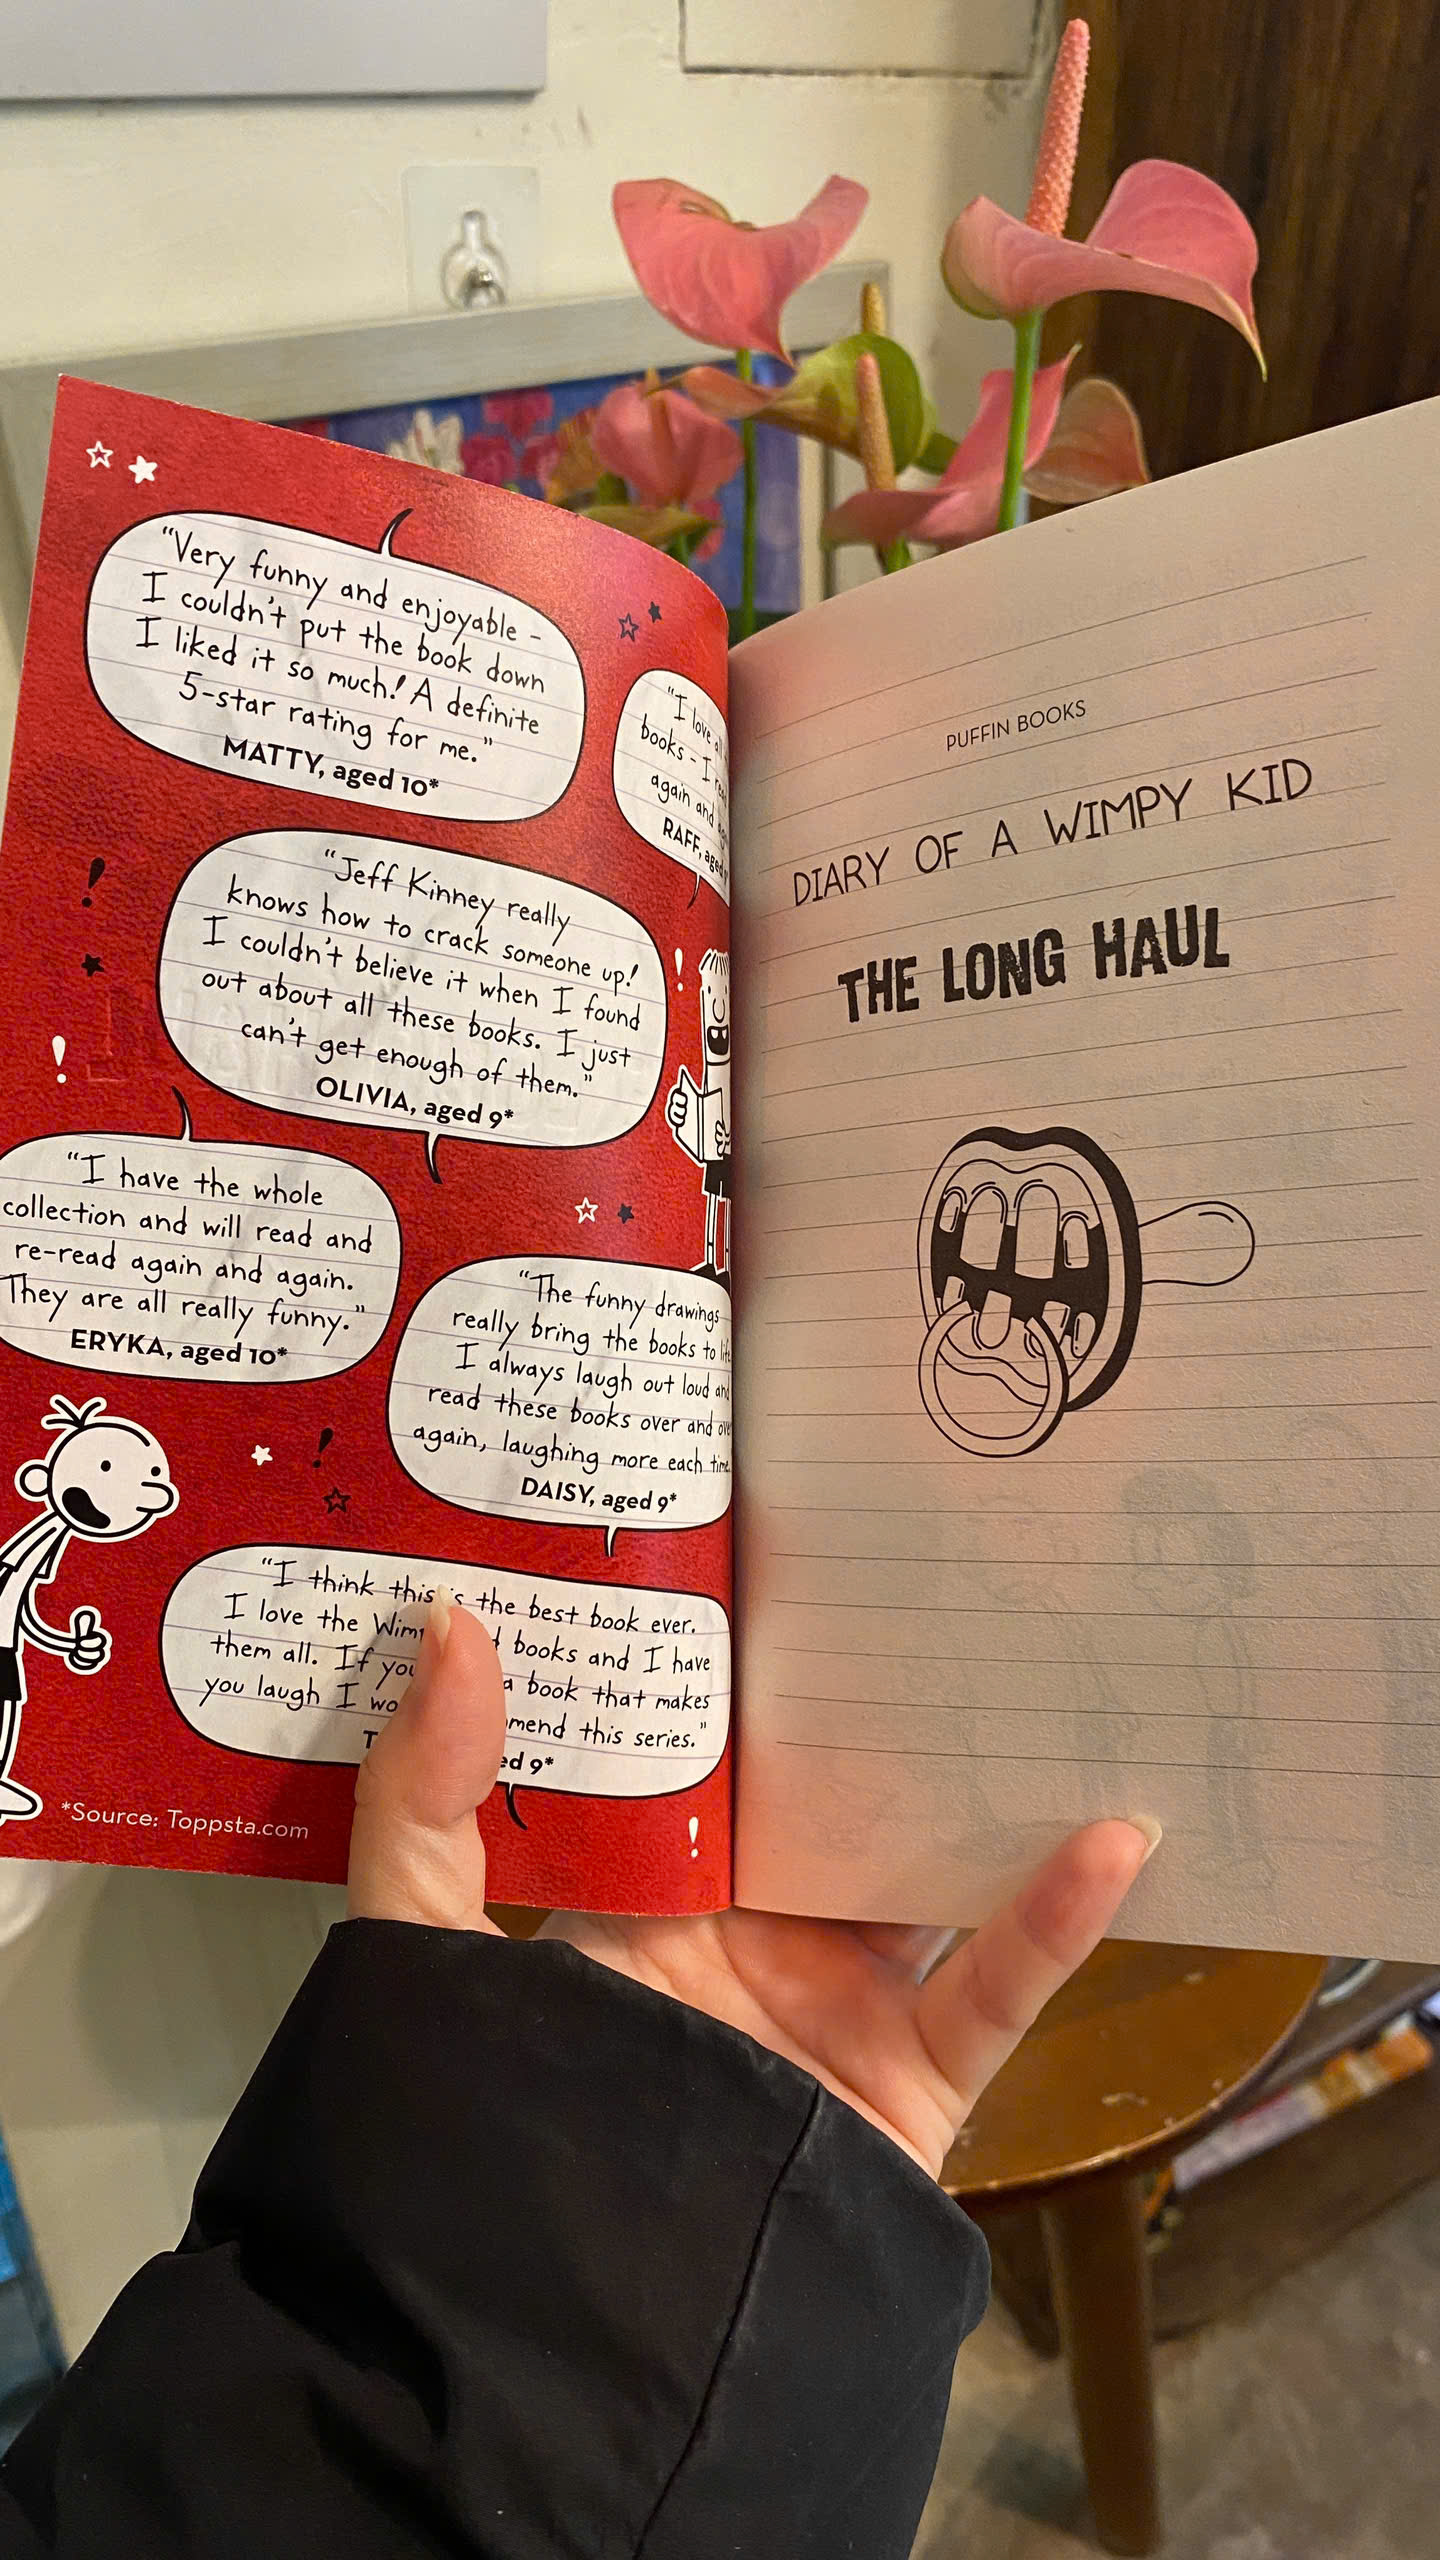 "Very funny and enjoyable -
I couldn't put the book down
I liked it so much! A definite
5-star rating for me."
MATTY, aged 10*
"I love
books - I
again and
RAFF,
"Jeff Kinney really
knows how to crack someone up!
I couldn't believe it when I found
out about all these books. I just
can't get enough of them."
OLIVIA, aged 9*
"I have the whole
collection and will read and
re-read again and again.
They are all really funny."
ERYKA, aged 10*
"The funny drawings
really bring the books to
I always laugh out loud and
read these books over and
again, laughing more each time
DAISY, aged 9*
"I think this is the best book ever.
I love the books and I have
them all. If you a book that makes
you laugh I this series."
9*
*Source: Toppsta.com
PUFFIN BOOKS
DIARY OF A WIMPY KID
THE LONG HAUL